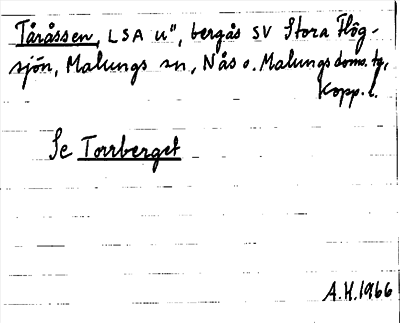 Tåråssen, LSA u", bergås SV Stora Flög-
sjön, Malungs sn, Nås o. Malungs doms. tg,
Kopp. l.
Se Torrberget
A.H. 1966